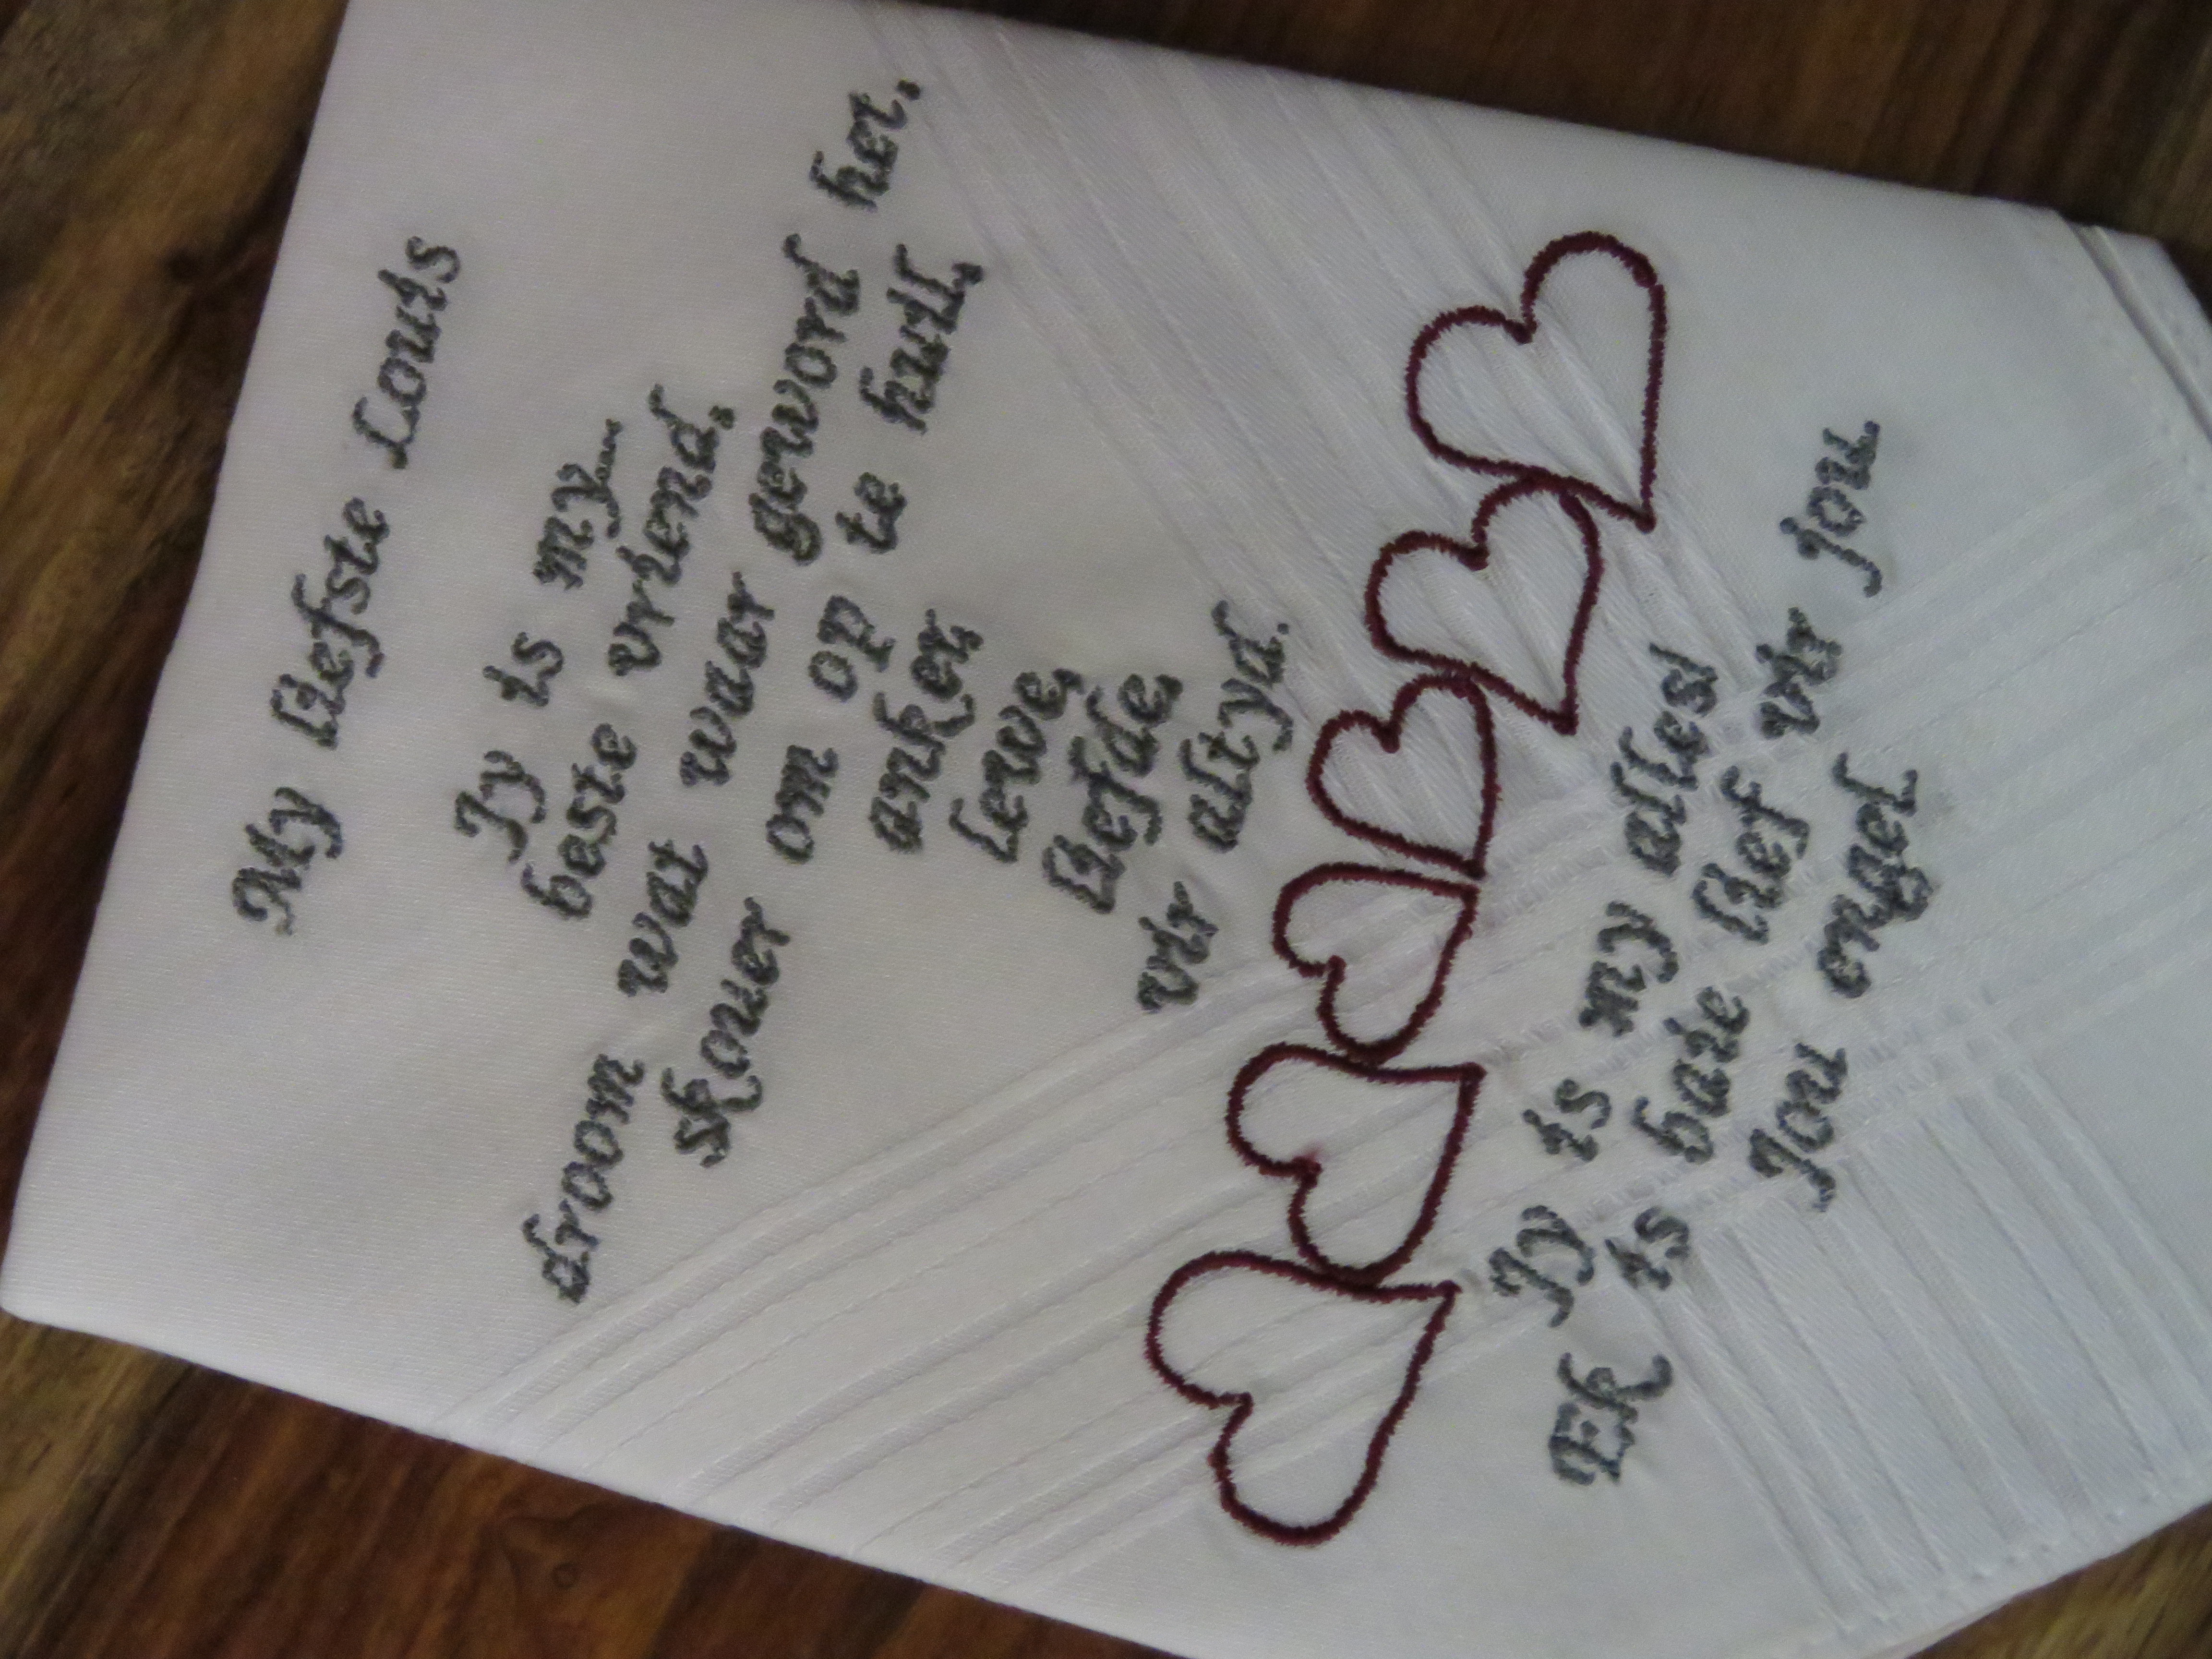 My liefste Louis
Jy is my
beste vriend,
droom wat waar geword het,
skouer om op te huil,
anker,
lewe,
liefde,
vir altyd.
Jy is my alles!
Ek is baie lief vir jou
Jou engel